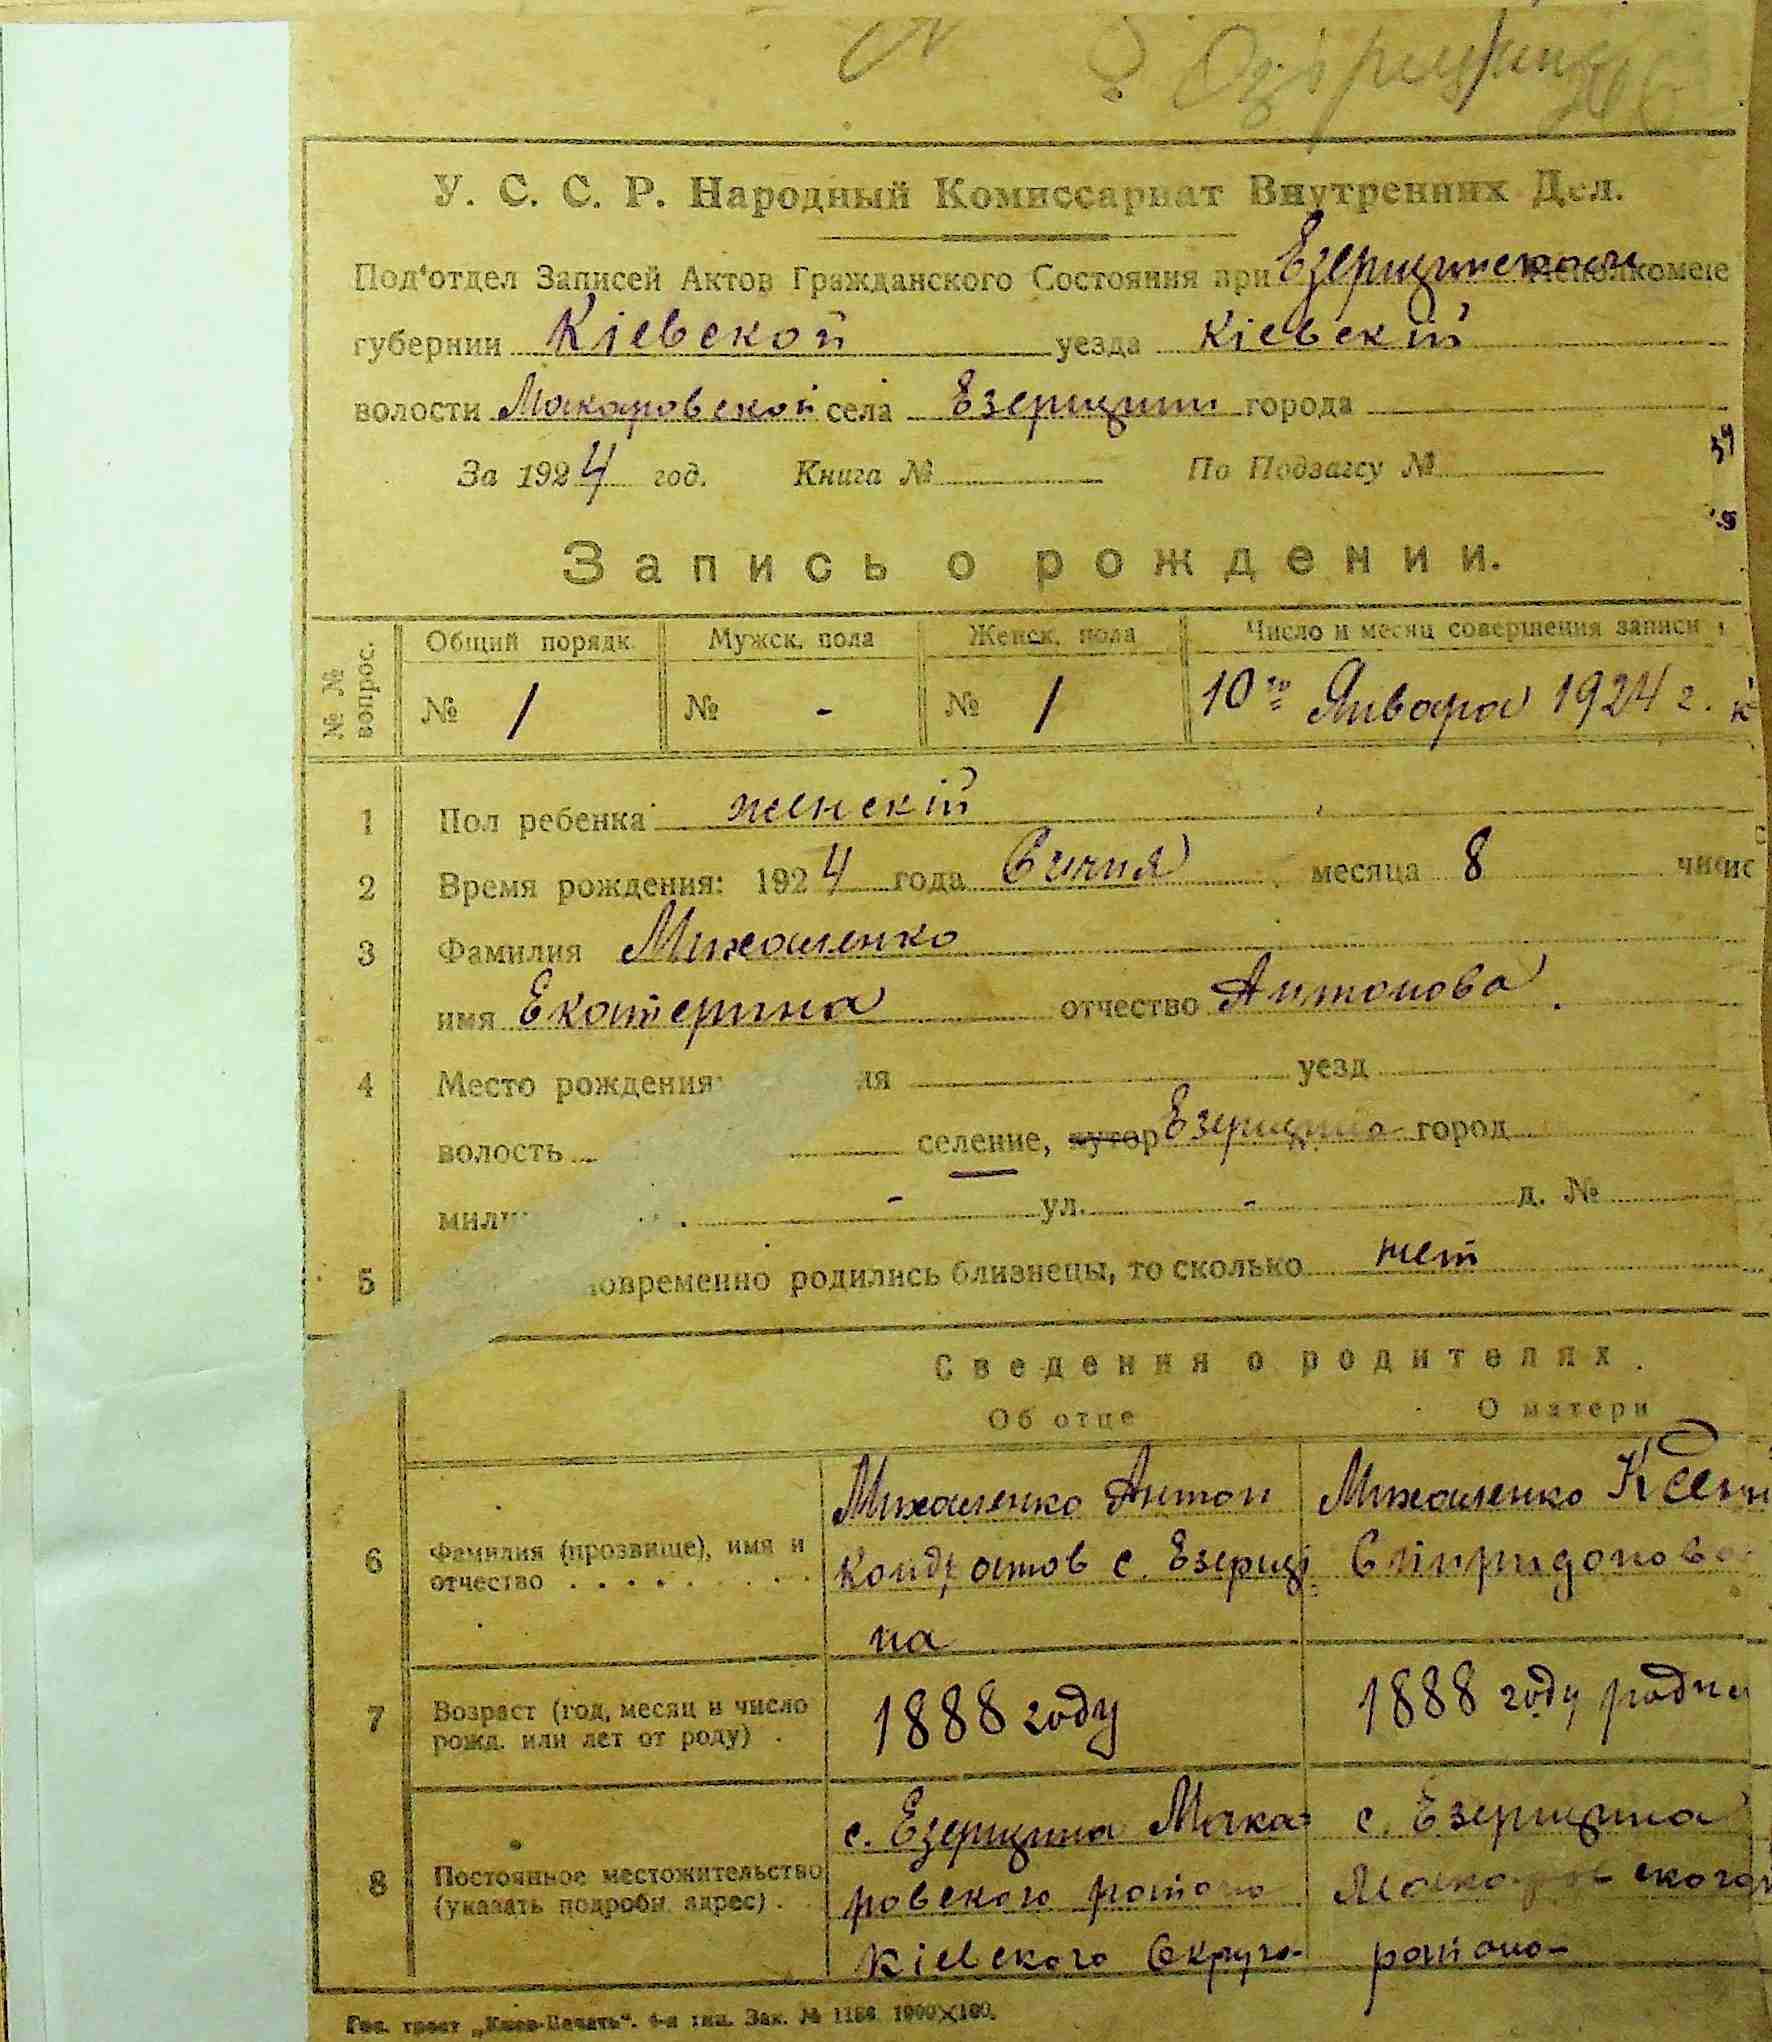 У. С. С. Р. Народный Комиссариат Внутренних Дел.
Под'отдел Записей Актов Гражданского Состояния при Езерщинском Исполкоме
губернии Кіевской уезда Кіевскій
волости Макаровской села Езерщини города
34
За 1924 год. Книга № По Подзагсу №
Запись о рождении.
№ № вопрос.
Общий порядк. Мужск. пола Женск. пола Число и месяц совершения записи
№ 1 № - № 1 10го Января 1924 г.
1 Пол ребенка женскій
2 Время рождения: 1924 года Січня месяца 8
3 Фамилия Михаленко
имя Екатерина отчество Антонова
4 Место рождения: уезд
волость селение, хутор Езерщина город
- ул. - д. №
5 новременно родились близнецы, то сколько нет
Сведения о родителях.
Об отце О матери
Михаленко Антон Михаленко Ксени
6 Фамилия (прозвище), имя и отчество Кондратов с. Езерщи Спиридонова
на
7 Возраст (год, месяц и число рожд. или лет от роду) 1888 году 1888 году
с. Езерщина Мака= с. Езерщина
8 Постоянное местожительство (указать подробн. адрес) ровского района Макаровского
Кіевского Округа района
Гос. трест „Киев-Печать“. 4-я тип. Зак. № 1186 1000×100.